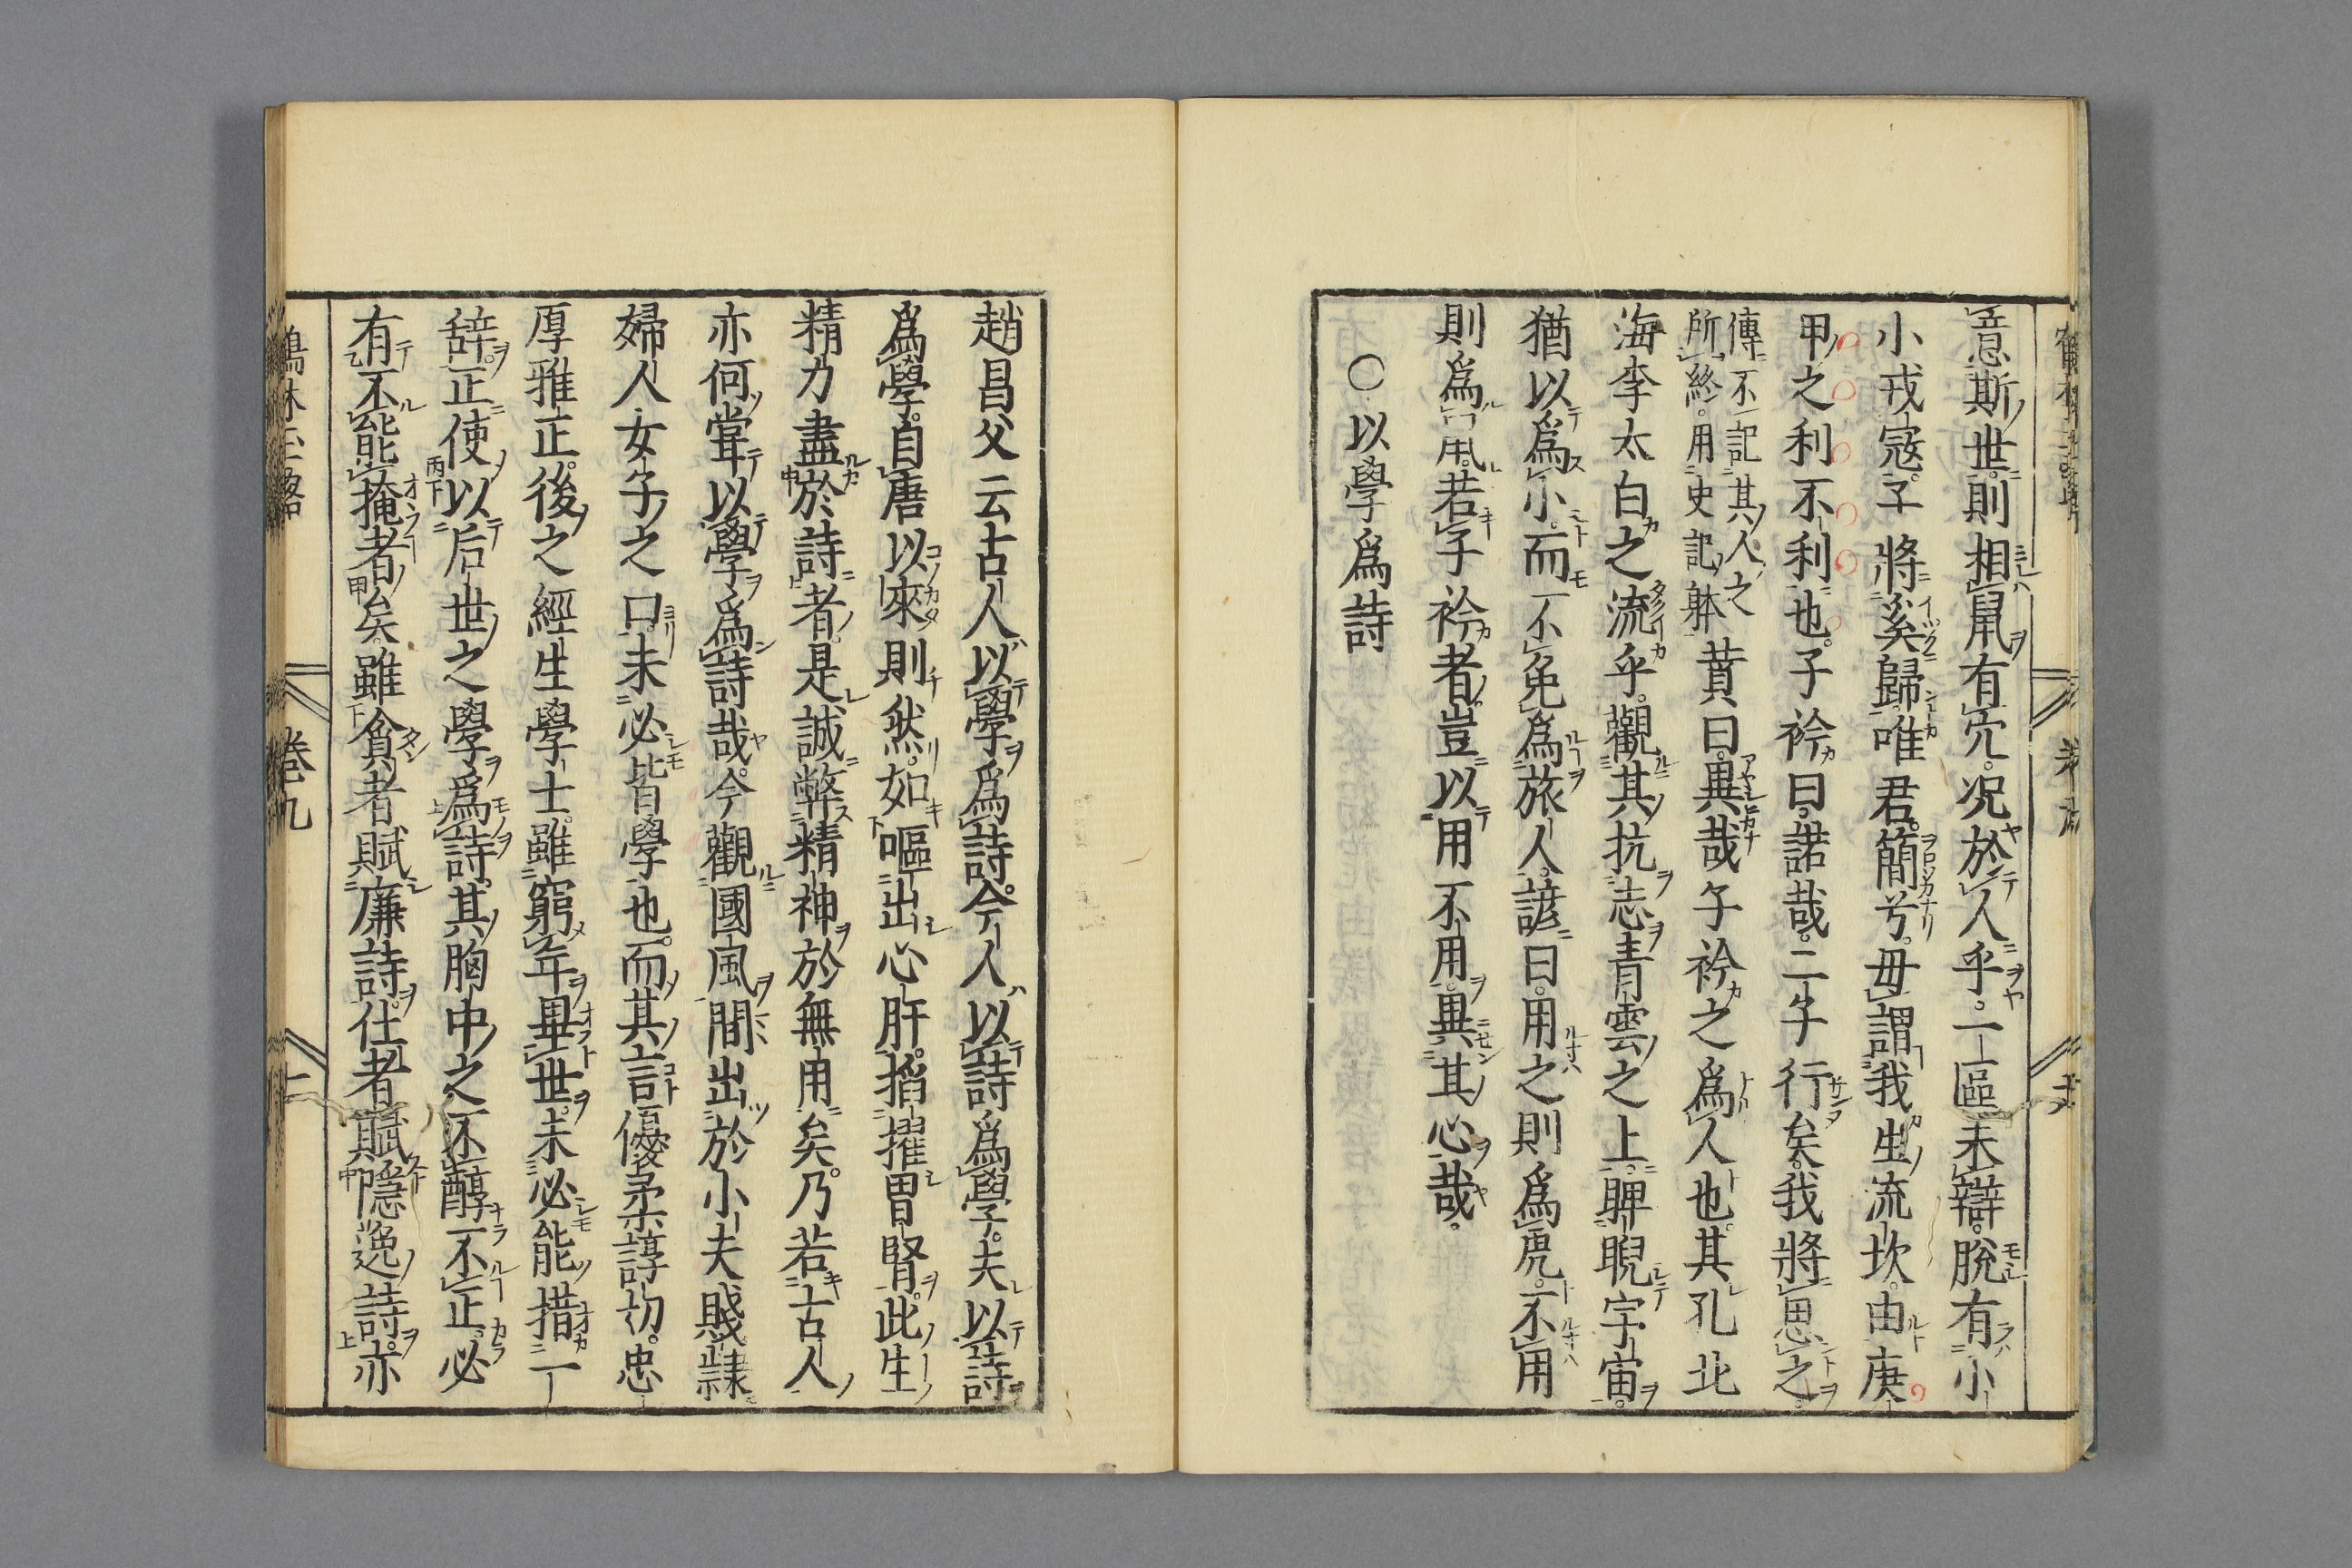 意斯世則相鼠有穴。况於人乎。一區未辯。脫有小
小戎寇。子將奚歸。唯君。簡兮。毋謂我生流坎。由庚
甲之利不利也。子衿曰。諾哉。二子行矣。我將思之。
傳不記其人之
所終。用史記躰
賛曰。異哉子衿之爲人也。其孔北
海李太白之流乎。觀其抗志青雲之上。睥睨宇宙。
猶以爲小。而不免爲旅人。諺曰。用之則爲虎。不用
則爲鼠。若子衿者。豈以用不用。異其心哉。
○以學爲詩
趙昌父云古人以學爲詩。今人以詩爲學。夫以詩
爲學。自唐以來則然。如嘔出心肝。搯擢胃腎。此生
精力盡於詩者。是誠弊精神於無用矣。乃若古人
亦何甞以學爲詩哉。今觀國風間出於小夫賤隷
婦人女子之口。未必皆學也。而其言優柔諄切。忠
厚雅正。後之經生學士。雖窮年畢世。未必能措一
辞。正使以后世之學爲詩。其胸中之不醇不正。必
有不能掩者矣。雖貪者賦廉詩。仕者賦隱逸詩。亦
卷九